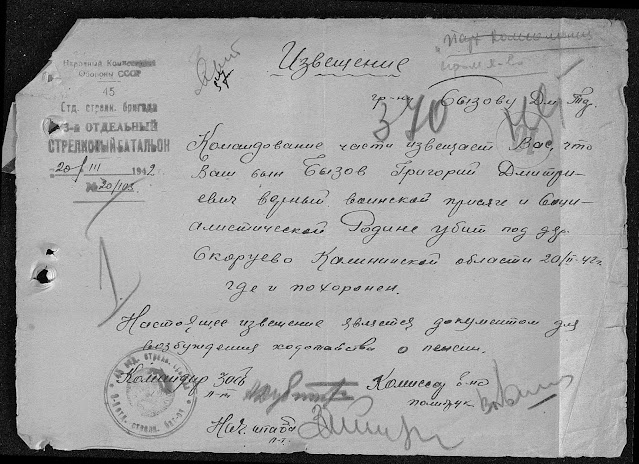 Народный Комиссариат
Обороны СССР
45
Отд. стрелк. бригада
3-й ОТДЕЛЬНЫЙ
СТРЕЛКОВЫЙ БАТАЛЬОН
20/III 1942.
№ 20/103
Извещение
гр-ну Бызову Дм.
370
Командование части извещает Вас, что
Ваш сын Бызов Григорий Дмитри-
евич верный воинской присяге и Соци-
алистической Родине убит под дер.
Скоруево Калининской области 20/II-42г.
где и похоронен.
Настоящее извещение является документом для
возбуждения ходотайства о пенсии.
Командир 3осб
л-т
Комиссар б-на
политрук
Нач. штаба
л-т.
1